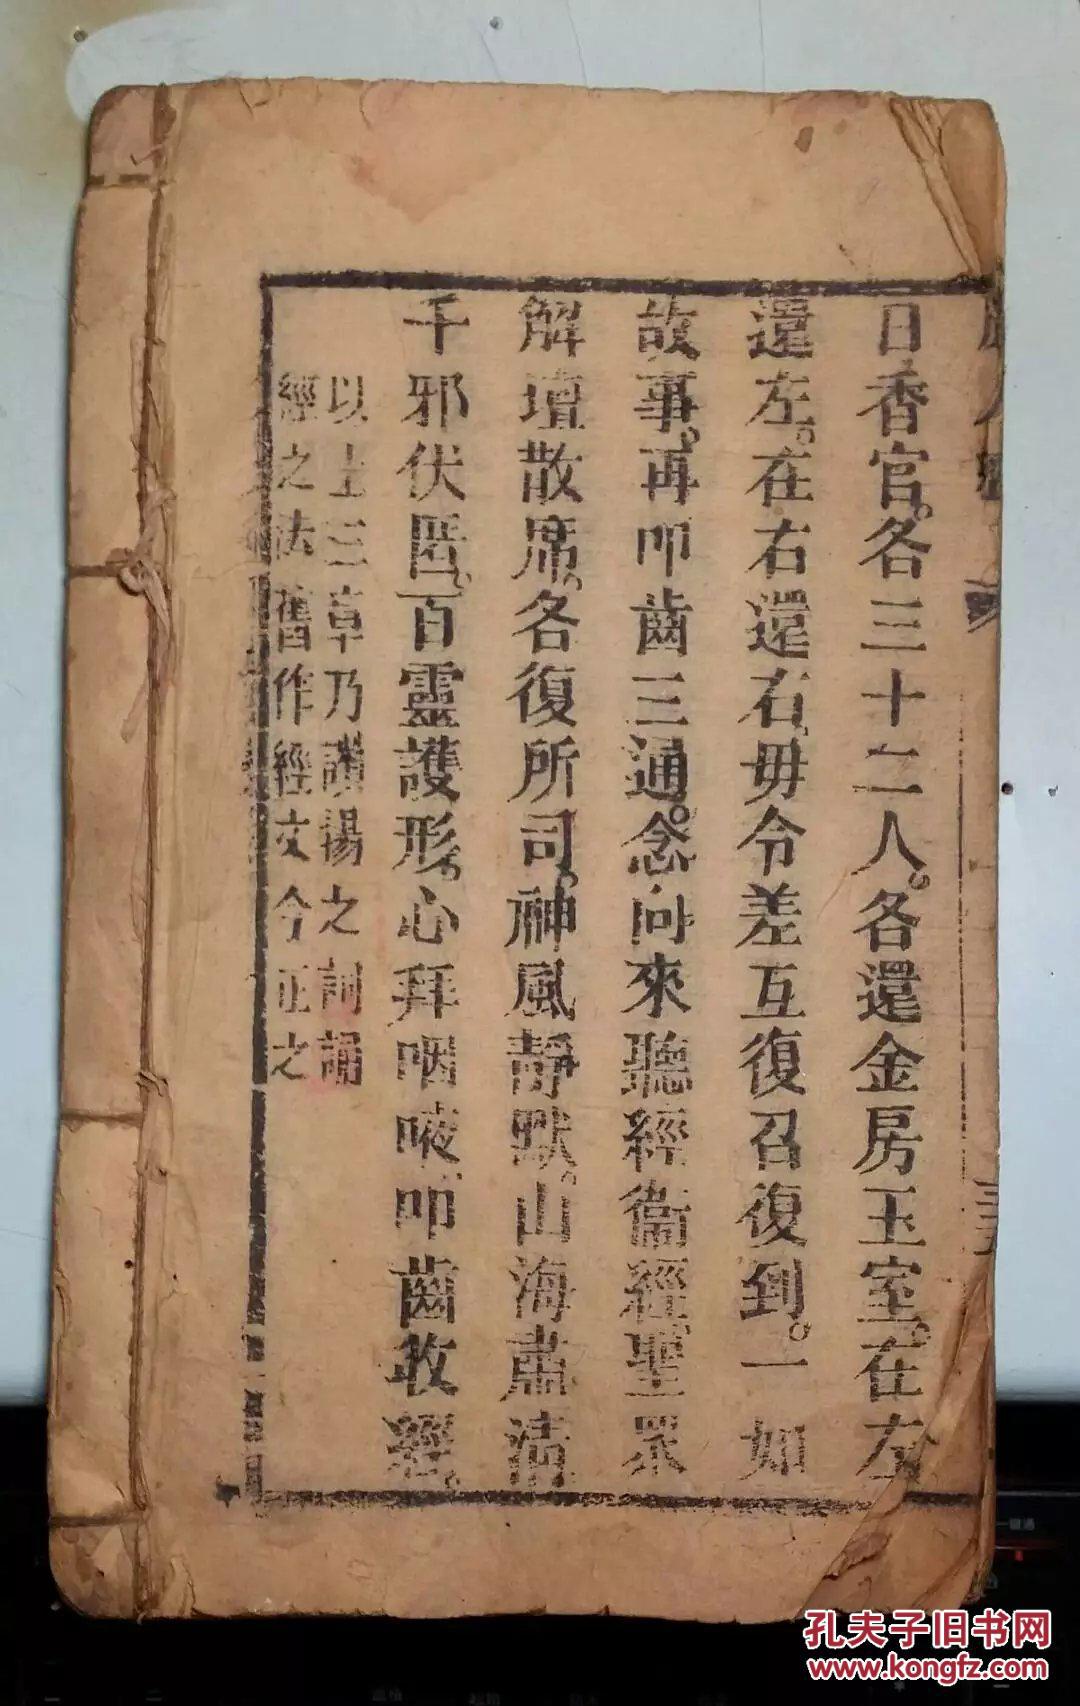 日香官。各三十二人。各還金房玉室。在左
還左。在右還右。毋令差互復召復到。一如
故事。再叩齒三通。念向來聽經衞經聖眾
解壇散席。各復所司。神風靜默。山海肅清
千邪伏匿。百靈護形。心拜咽液。叩齒收經。
以上三章乃讚揚之詞誦
經之法舊作經文今正之
孔夫子旧书网
www.kongfz.com